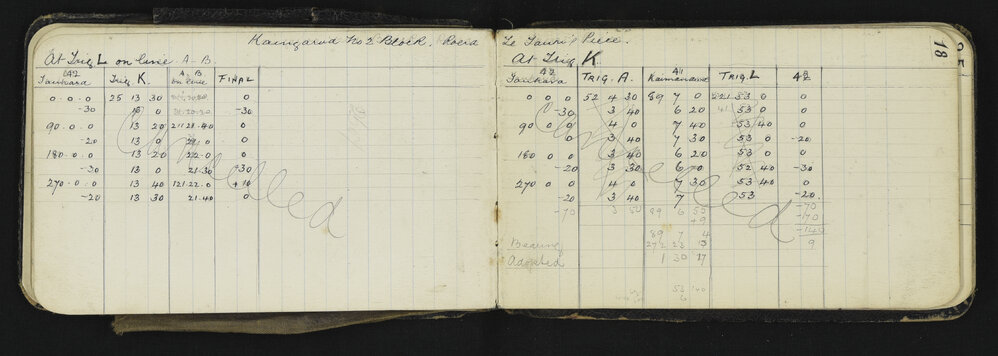 Block. Road
At Trig L on line A-B
42 A-B
Tauhara Trig K. on line FINAL
0 . 0 . 0 25 13 30 0
-30 13 0 21.20 -30
90 . 0 . 0 13 20 211 21 . 40 0
-20 13 0 21 . 0 0
180 . 0 . 0 13 20 22 . 0 0
-30 13 0 21 . 30 -30
270 . 0 . 0 13 40 121 . 22 . 0 +10
-20 13 30 21 . 40 0
Cancelled
Piece.
18
At Trig K.
42 41 42
Tauhara TRIG. A. Kaimanawa TRIG. L
0 0 0 52 4 30 89 7 0 221 53 0 0
-30 3 40 6 20 53 0 0
90 0 0 4 0 7 40 53 40 0
0 3 40 7 30 53 0 -20
180 0 0 3 40 6 20 53 0 0
-20 3 40 52 40 -30
270 0 0 4 0 7 30 53 40 0
-20 3 40 7 53 -20
Cancelled
-70 3 50 89 6 55 -70
+9 -70
89 7 4 -140
Bearing 272 23 13 9
Adopted 1 30 17